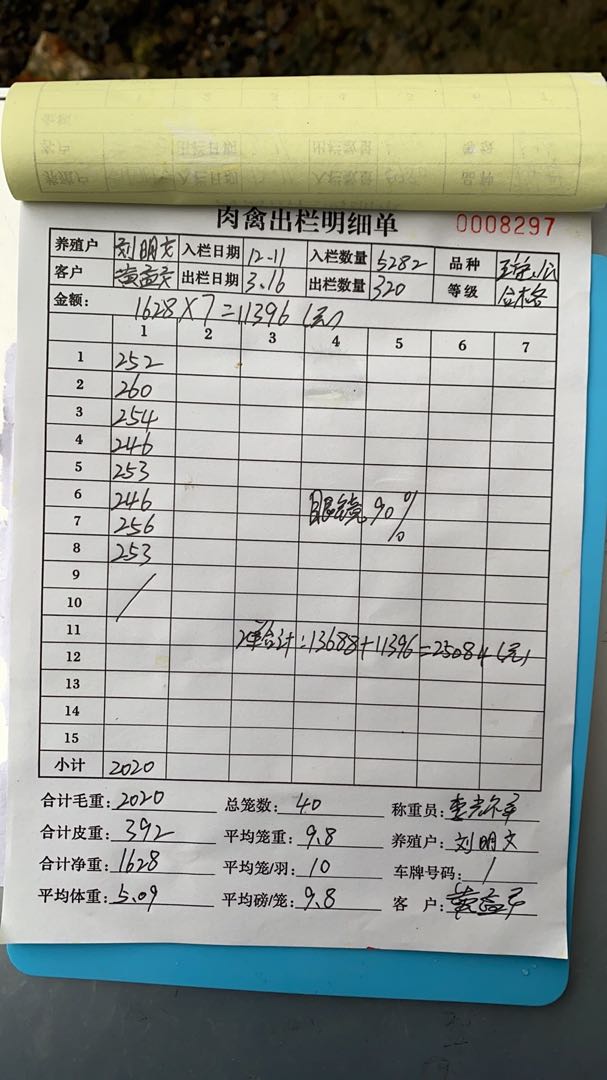 肉禽出栏明细单 0008297
养殖户 刘明文 入栏日期 12-11 入栏数量 5282 品种
客户 出栏日期 3.16 出栏数量 320 等级 合格
金额: 1628×7=11396(元)
1 2 3 4 5 6 7
1 252
2 260
3 254
4 246
5 253
6 246 眼镜90%
7 256
8 253
9
10
11 2单合计:13688+11396=25084(元)
12
13
14
15
小计 2020
合计毛重: 2020 总笼数: 40 称重员:
合计皮重: 392 平均笼重: 9.8 养殖户: 刘明文
合计净重: 1628 平均笼/羽: 10 车牌号码: /
平均体重: 5.09 平均磅/笼: 9.8 客 户: